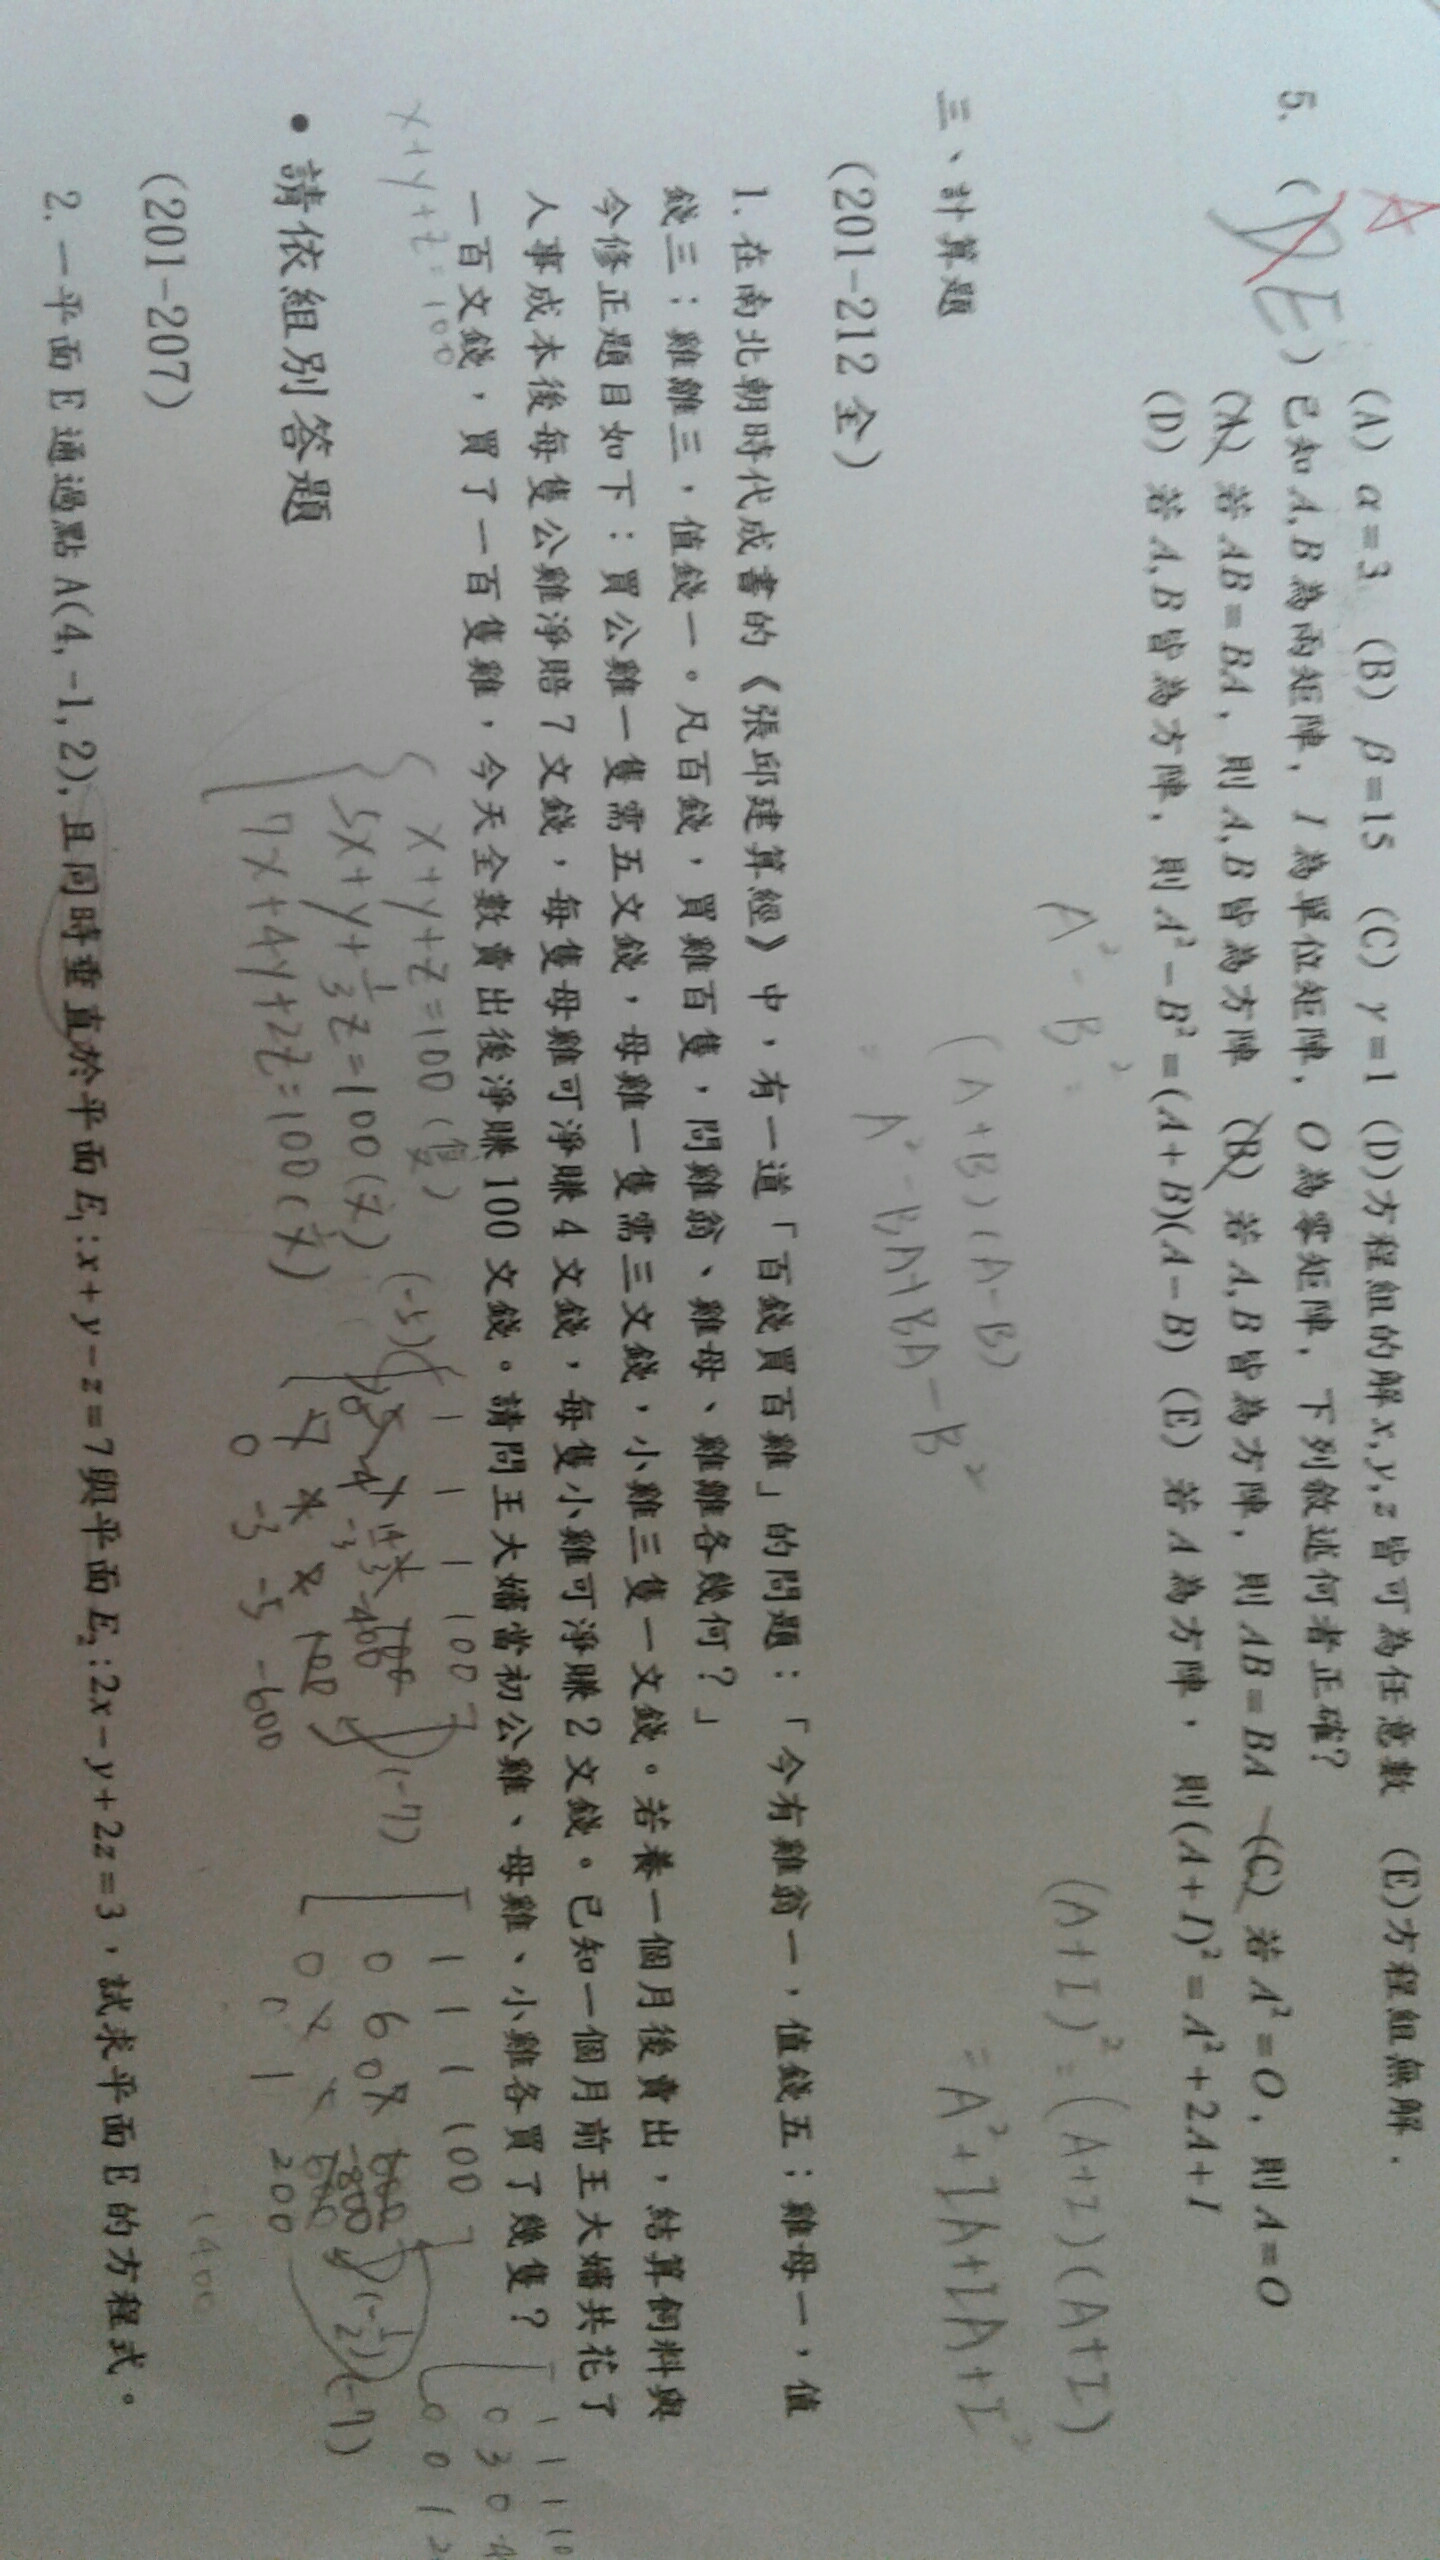 (A) α=3 (B) β=15 (C) γ=1 (D)方程組的解x,y,z皆可為任意數 (E)方程組無解.
5. (DE) 已知A,B為兩矩陣, I為單位矩陣, O為零矩陣, 下列敘述何者正確?
(A) 若AB=BA, 則A,B皆為方陣 (B) 若A,B皆為方陣, 則AB=BA (C) 若A²=O, 則A=O
(D) 若A,B皆為方陣, 則A²-B²=(A+B)(A-B) (E) 若A為方陣, 則(A+I)²=A²+2A+I
A²-B²=
(A+B)(A-B)
=A²-BA+BA-B²
(A+I)²=(A+I)(A+I)
=A²+IA+IA+I²
三、計算題
(201-212 全)
1. 在南北朝時代成書的《張邱建算經》中,有一道「百錢買百雞」的問題:「今有雞翁一,值錢五;雞母一,值
錢三;雞雛三,值錢一。凡百錢,買雞百隻,問雞翁、雞母、雞雛各幾何?」
今修正題目如下:買公雞一隻需五文錢,母雞一隻需三文錢,小雞三隻一文錢。若養一個月後賣出,結算飼料與
人事成本後每隻公雞淨賠7文錢,每隻母雞可淨賺4文錢,每隻小雞可淨賺2文錢。已知一個月前王大嬸共花了
一百文錢,買了一百隻雞,今天全數賣出後淨賺100文錢。請問王大嬸當初公雞、母雞、小雞各買了幾隻?
x+y+z=100
x+y+z=100(隻)
5x+y+1/3z=100(文)
7x+4y+2z=100(文)
(-5)
1 1 1 100
(-7)
0 -3 -5 -600
1 1 1 100
0 0 1 200
(-1/2)(-7)
• 請依組別答題
(201-207)
2. 一平面E通過點A(4,-1,2),且同時垂直於平面E₁:x+y-z=7與平面E₂:2x-y+2z=3,試求平面E的方程式。